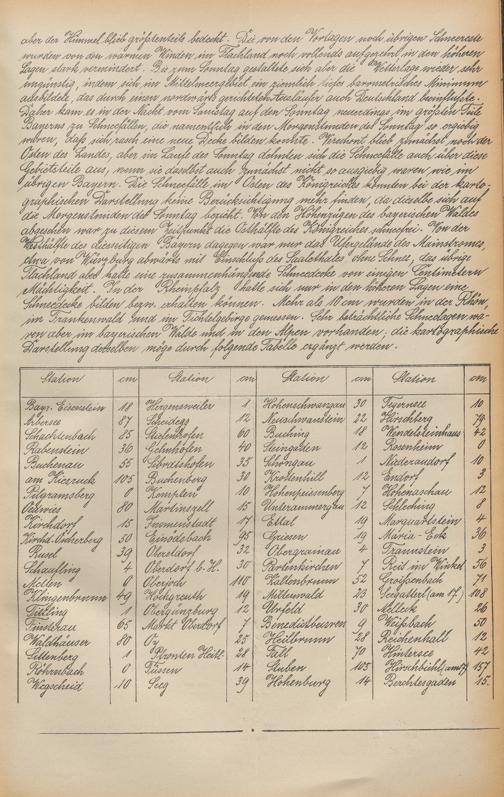 aber der Himmel blieb größtenteils bedeckt. Die von den Vorlagen noch übrigen Schneereste
wurden von den warmen Winden im Flachland noch vollends aufgezehrt, in den höheren
Lagen stark vermindert. Bis zum Sonntag gestaltete sich aber die Wetterlage wieder sehr
ungünstig, indem sich im Mittelmeergebiet ein ziemlich tiefes barometrisches Minimum
ausbildete, das durch einen nordwärts gerichteten Ausläufer auch Deutschland beeinflußte.
Daher kam es in der Nacht vom Samstag auf den Sonntag neuerdings im größten Teile
Bayerns zu Schneefällen, die namentlich in den Morgenstunden des Sonntag so ergiebig
waren, daß sich rasch eine neue Decke bilden konnte. Verschont blieb zunächst noch der
Osten des Landes, aber im Laufe des Sonntag dehnten sich die Schneefälle auch über diese
Gebietsteile aus, wenn sie daselbst auch zunächst nicht so ausgiebig waren, wie im
übrigen Bayern. Die Schneefälle im Osten des Königreiches konnten bei der karto-
graphischen Darstellung keine Berücksichtigung mehr finden, da dieselbe sich auf
die Morgenstunden des Sonntag bezieht. Von den Höhenzügen des bayerischen Waldes
abgesehen war zu diesem Zeitpunkt die Osthälfte des Königreiches schneefrei. Von der
Westhälfte des diesseitigen Bayern dagegen war nur das Ufergelände des Mainstromes,
etwa von Würzburg abwärts mit Einschluß des Saalethales ohne Schnee, das übrige
Flachland aber hatte eine zusammenhängende Schneedecke von einigen Centimetern
Mächtigkeit. In der Rheinpfalz hatte sich nur in den höheren Lagen eine
Schneedecke bilden bezw. erhalten können. Mehr als 10 cm wurden in der Rhön,
im Frankenwald und im Fichtelgebirge gemessen. Sehr beträchtliche Schneelagen wa-
ren aber im bayerischen Walde und in den Alpen vorhanden; die kartographische
Darstellung derselben möge durch folgende Tabelle ergänzt werden.
Station cm Station cm Station cm Station cm
Bayr. Eisenstein 18 Hergensweiler 1 Hohenschwangau 30 Tegernsee 10
Arbersee 87 Scheidegg 12 Neuschwanstein 22 Hirschberg 74
Schachtenbach 85 Stiefenhofen 60 Buching 18 Wendelsteinhaus 42
Rabenstein 36 Gelnhofen 40 Steingaden 12 Rosenheim 0
Buchenau 55 Sibratshofen 35 Schongau 1 Niederaudorf 10
am Kiesruck 105 Buchenberg 30 Krottenhill 12 Endorf 3
Pilgramsberg 0 Kempten 10 Hohenpeissenberg 7 Hohenaschau 12
Oedwies 80 Martinszell 15 Unterammergau 12 Schleching 8
Kirchdorf 15 Immenstadt 17 Ettal 19 Marquartstein 4
Kirchd. Ortherberg 50 Einödsbach 95 Griesen 19 Maria-Eck 36
Rusel 39 Oberstdorf 32 Obergrainau 4 Traunstein 3
Schaufling 4 Oberdorf b. H. 30 Partenkirchen 7 Reit im Winkel 56
Metten 0 Oberjoch 110 Kaltenbrunn 52 Groißenbach 71
Klingenbrunn 49 Hochgreuth 19 Mittenwald 23 Seegatterl (am 17.) 108
Tittling 1 Obergünzburg 12 Urfeld 30 Melleck 26
Finsterau 65 Markt Oberdorf 7 Benedictbeuren 9 Weißbach 50
Waldhäuser 80 Oy 25 Heilbrunn 28 Reichenhall 12
Sittenberg 1 Pfronten Heitl. 28 Fall 70 Hintersee 42
Röhrnbach 0 Füssen 14 Stuben 105 Hirschbichl (am 17) 157
Wegscheid 10 Seeg 39 Hohenburg 14 Berchtesgaden 15